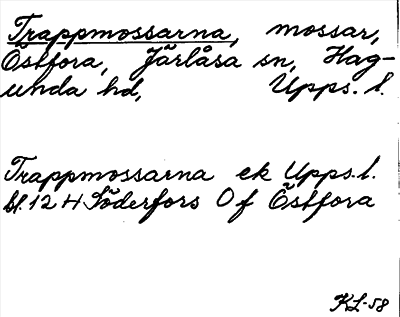 Trappmossarna, mossar,
Östfora, Järlåsa sn, Hag-
unda hd, Upps. l.
Trappmossarna ek Upps. l.
bl. 12 H Söderfors Of Östfora
KL-58